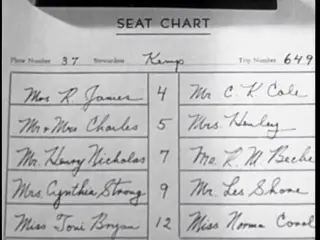 SEAT CHART
Plane Number 37 Stewardess Kemp Trip Number 649
Mrs. R. James 4 Mr. C. K. Cole
Mr & Mrs Charles 5 Mrs. Henley
Mr. Henry Nicholas 7 R. M. Beche
Mrs. Cynthia Strong 9 Mr. Les Shone
Miss Toni Bryan 12 Miss Norma